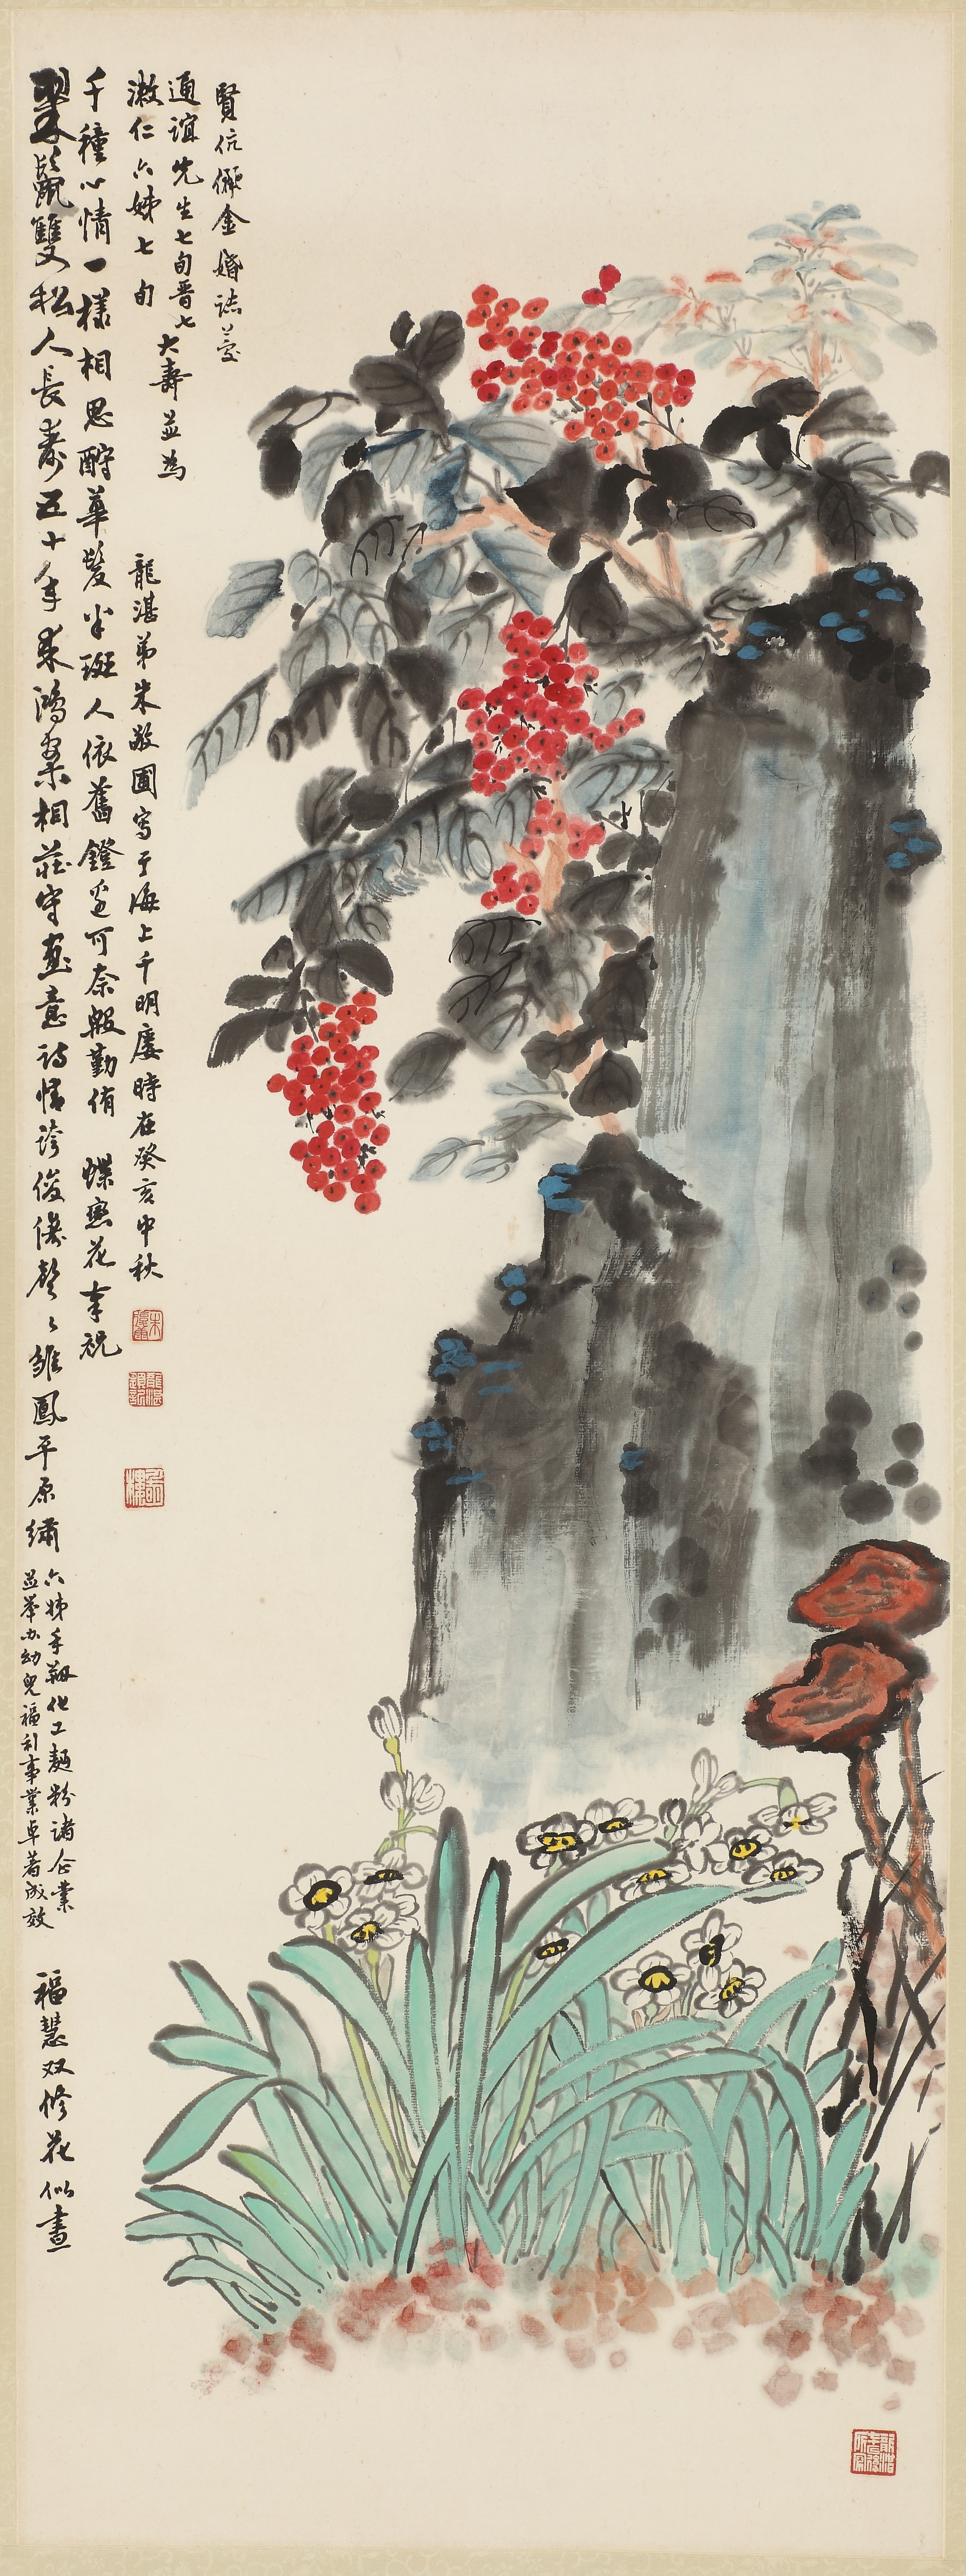 翠鬣雙松人長壽五十年來鴻案相莊守畫意詩情誇俊偶聲〻雛鳳平原繡
六姊手創化工麵粉諸企業
並举办幼兒福利事業卓著成效
福慧双修花似晝
千種心情一樣相思酎華髮半斑人依舊鐙邊可奈殷勤侑 蝶戀花奉祝
潄仁六姊七旬
通誼先生七旬晋七
大壽並為
賢伉儷金婚誌慶
龍湛弟朱敬圃寫于海上千明廔時在癸亥中秋